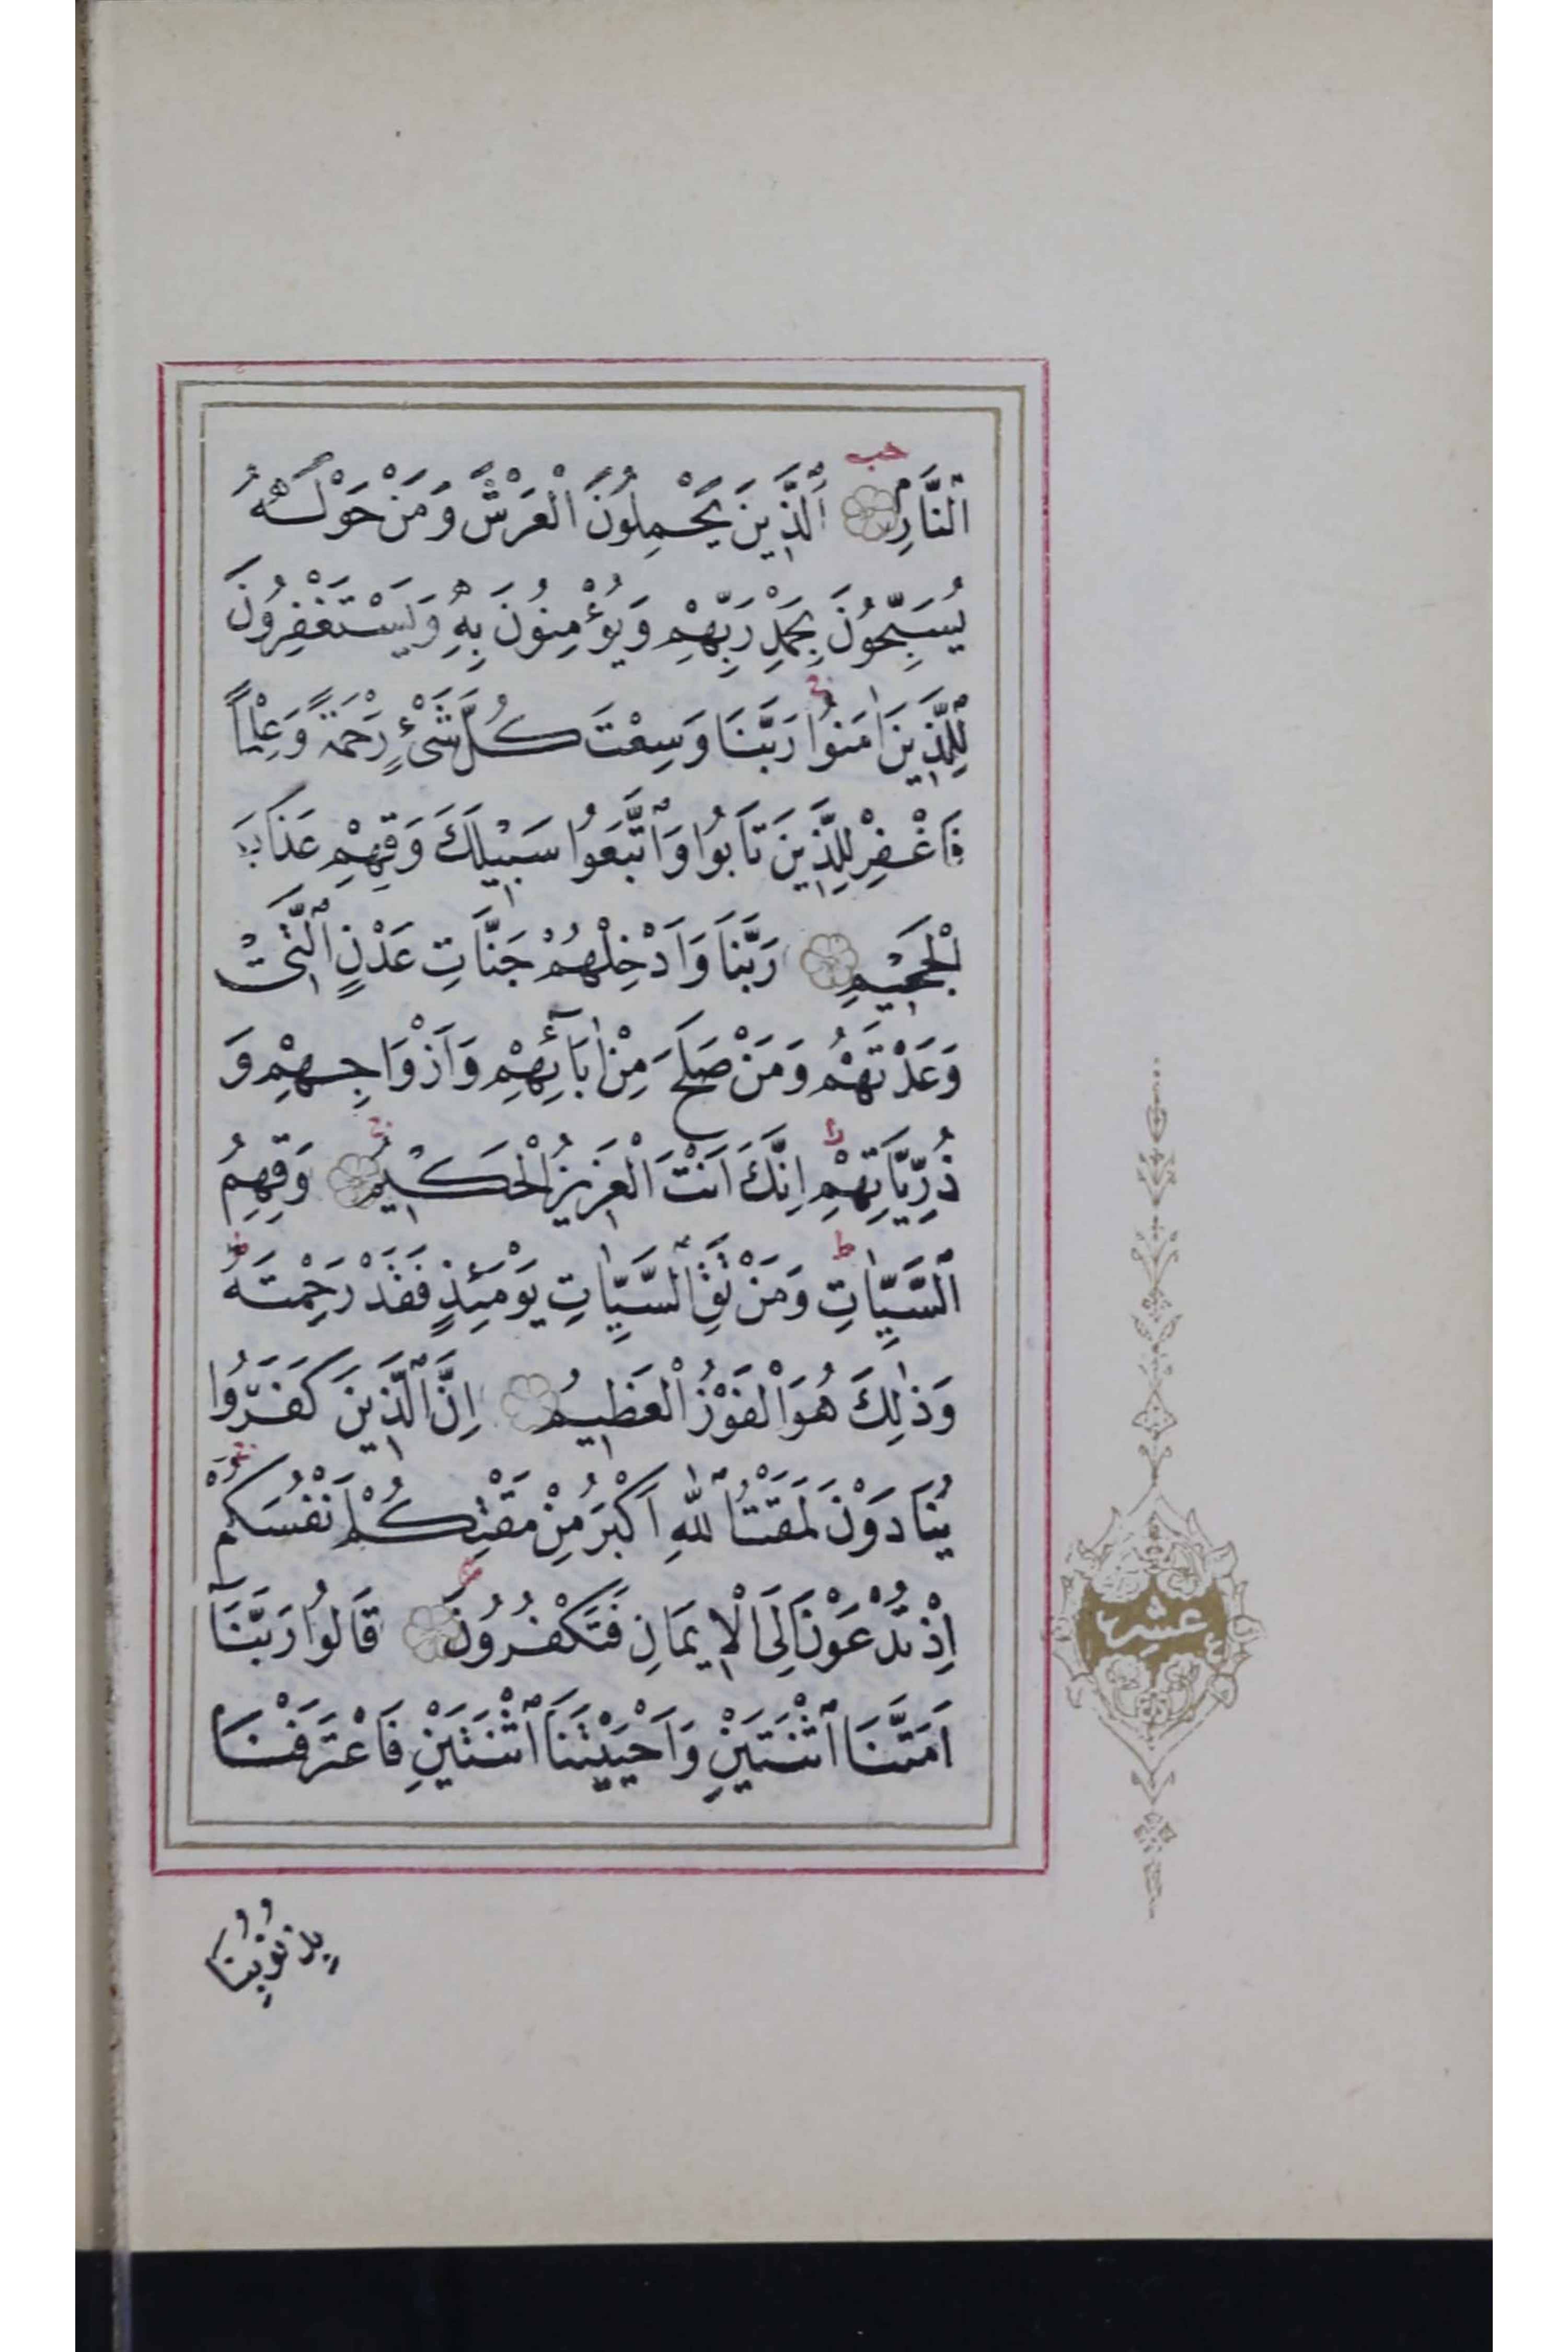 اَلنَّارِ اَلَّذِينَ يَحْمِلُونَ الْعَرْشَ وَمَنْ حَوْلَهُ
يُسَبِّحُونَ بِحَمْدِ رَبِّهِمْ وَيُؤْمِنُونَ بِهِ وَيَسْتَغْفِرُونَ
لِلَّذِينَ اٰمَنُوا رَبَّنَا وَسِعْتَ كُلَّ شَىْءٍ رَحْمَةً وَعِلْمًا
فَاغْفِرْ لِلَّذِينَ تَابُوا وَاتَّبَعُوا سَبِيلَكَ وَقِهِمْ عَذَابَ
الْجَحِيمِ رَبَّنَا وَاَدْخِلْهُمْ جَنَّاتِ عَدْنٍ الَّتِى
وَعَدْتَهُمْ وَمَنْ صَلَحَ مِنْ اٰبَائِهِمْ وَاَزْوَاجِهِمْ وَ
ذُرِّيَّاتِهِمْ اِنَّكَ اَنْتَ الْعَزِيزُ الْحَكِيمُ وَقِهِمُ
السَّيِّاٰتِ وَمَنْ تَقِ السَّيِّاٰتِ يَوْمَئِذٍ فَقَدْ رَحِمْتَهُ
وَذٰلِكَ هُوَ الْفَوْزُ الْعَظِيمُ اِنَّ الَّذِينَ كَفَرُوا
يُنَادَوْنَ لَمَقْتُ اللّٰهِ اَكْبَرُ مِنْ مَقْتِكُمْ اَنْفُسَكُمْ
اِذْ تُدْعَوْنَ اِلَى الْاِيمَانِ فَتَكْفُرُونَ قَالُوا رَبَّنَا
اَمَتَّنَا اثْنَتَيْنِ وَاَحْيَيْتَنَا اثْنَتَيْنِ فَاعْتَرَفْنَا
بِذُنُوبِنَا
عشر